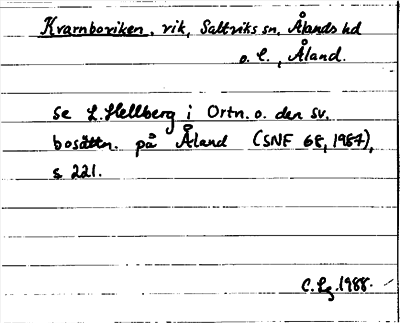 Kvarnboviken, vik, Saltviks sn, Ålands hd
o. l., Åland.
Se L. Hellberg i Ortn. o. den sv.
bosättn. på Åland (SNF 68, 1987),
s 221.
C. Lg. 1988.